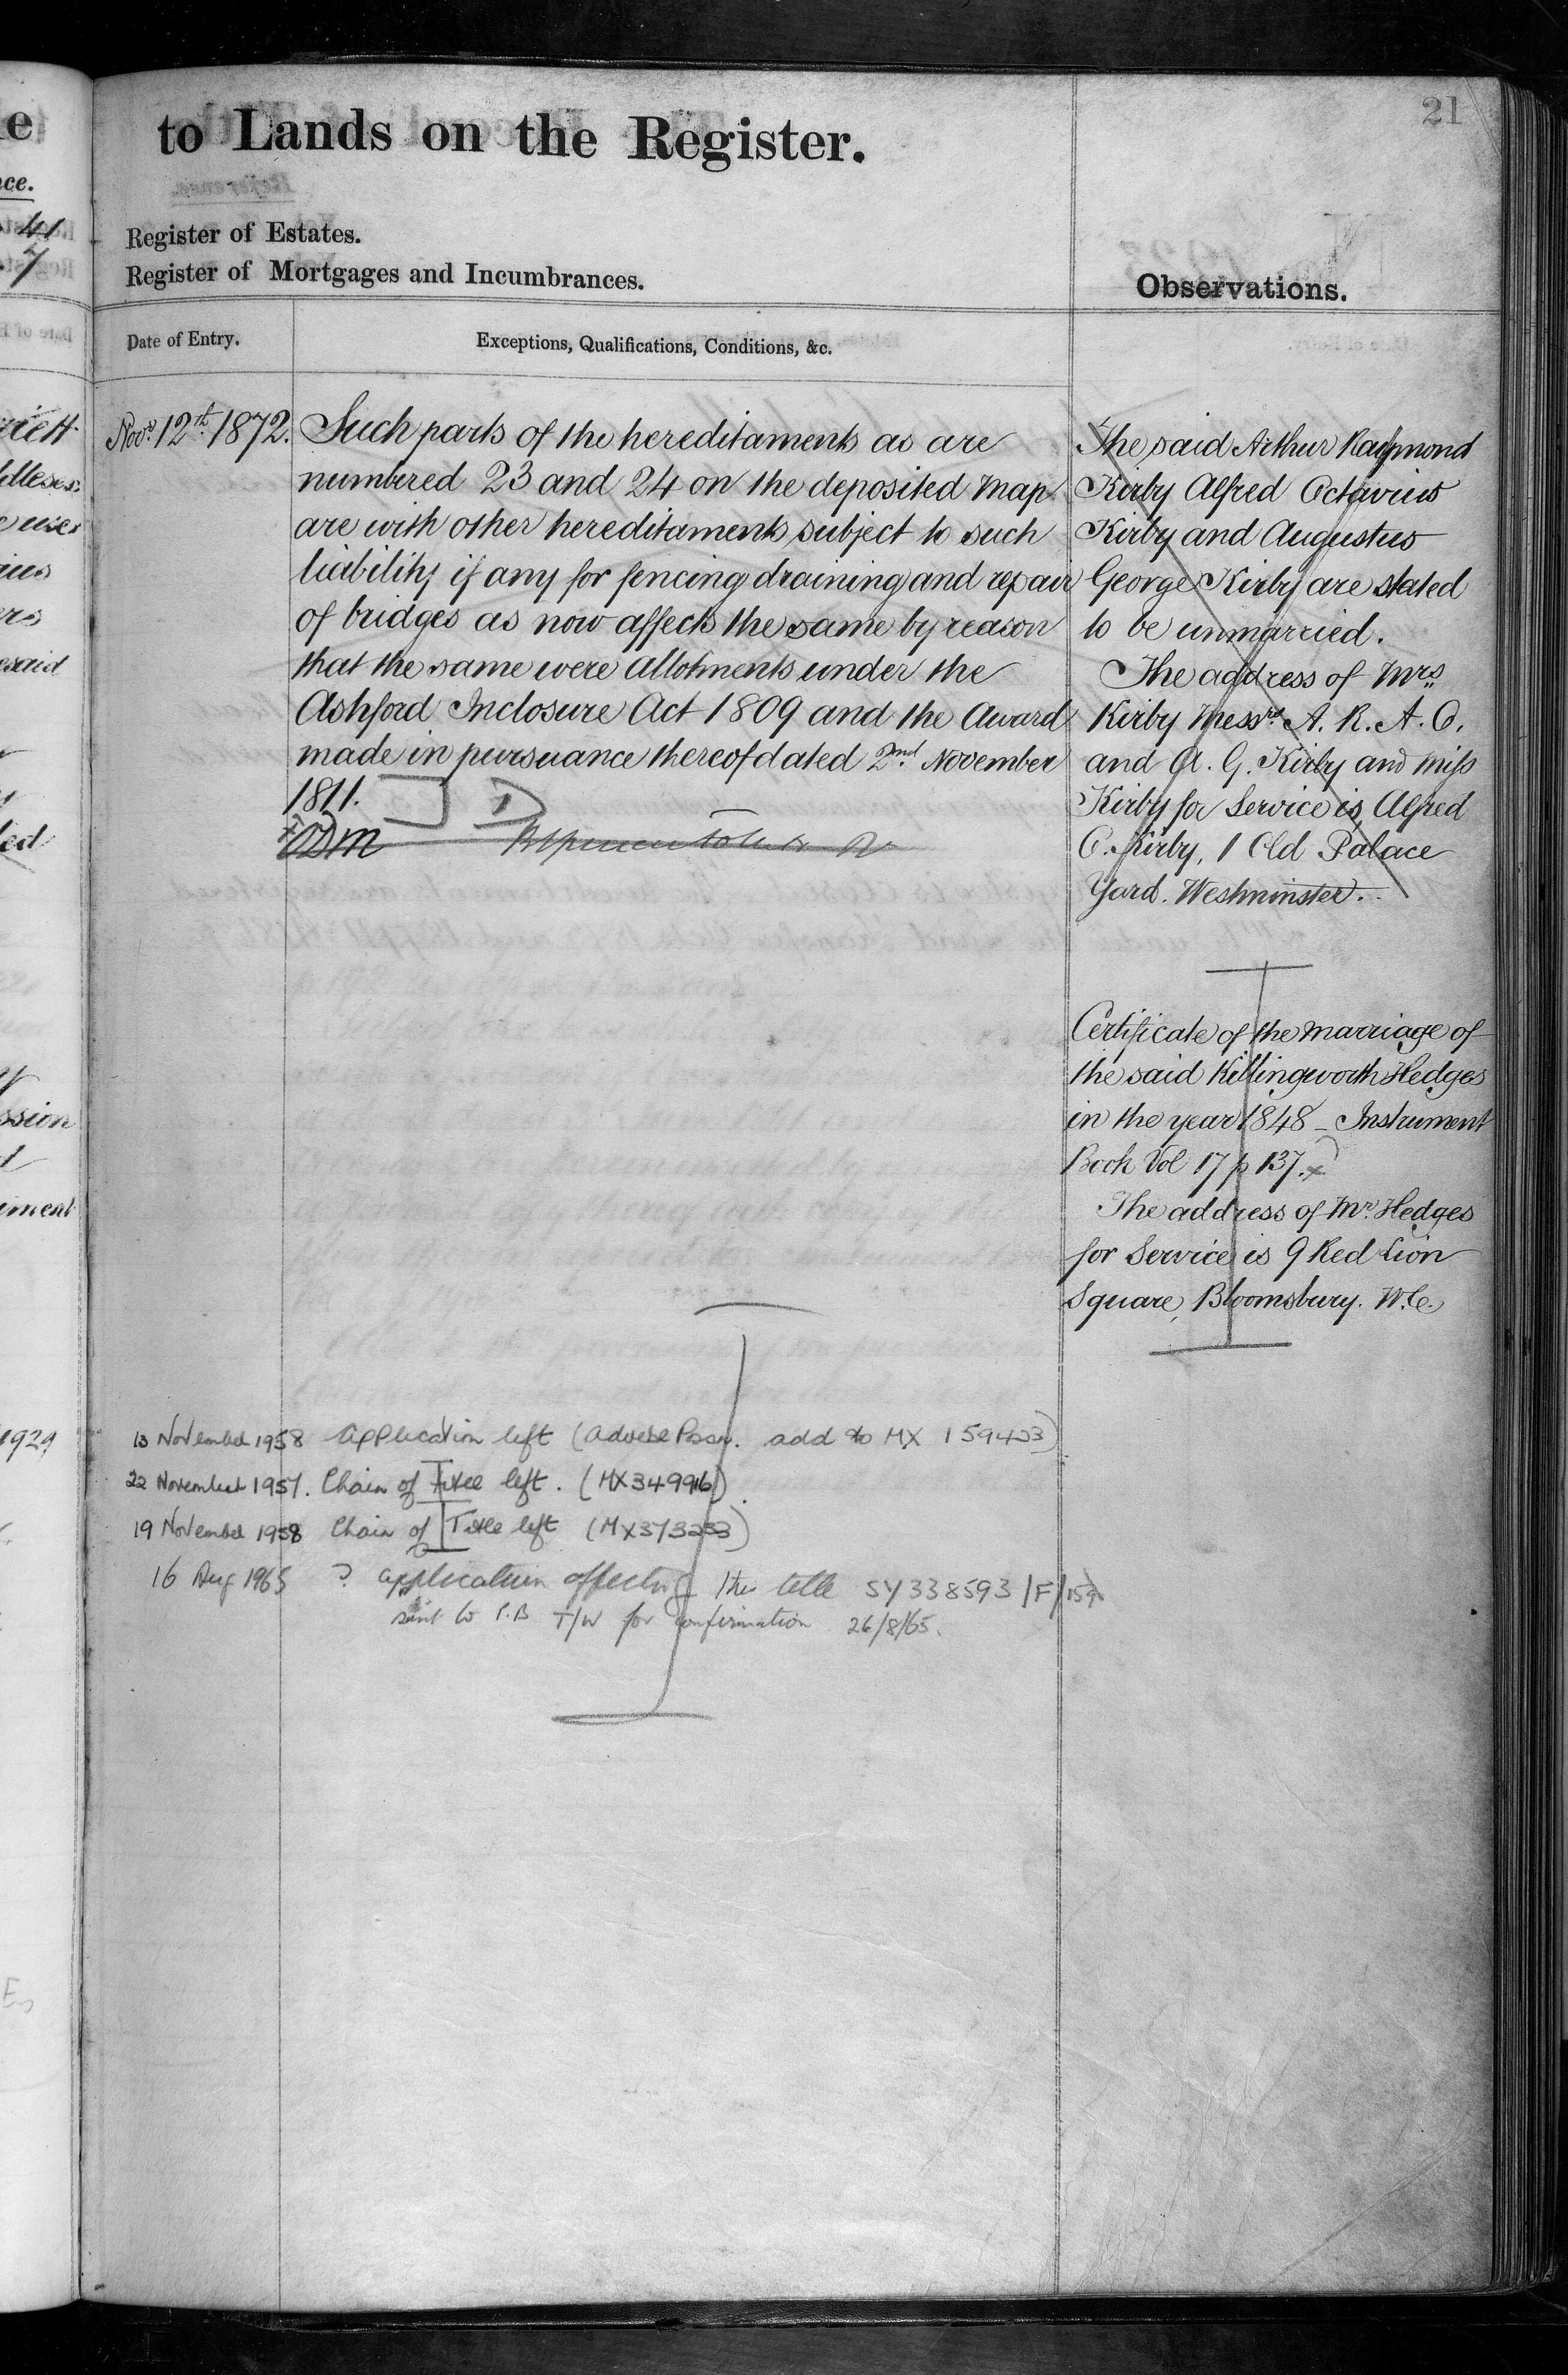 21
to Lands on the Register.
Register of Estates.
Register of Mortgages and Incumbrances.
Observations.
Date of Entry.
Exceptions, Qualifications, Conditions, &c.
Novr. 12th. 1872.
Such parts of the hereditaments as are
numbered 23 and 24 on the deposited Map
are with other hereditaments subject to such
liability if any for fencing draining and repair
of bridges as now affects the same by reason
that the same were allotments under the
Ashford Inclosure Act 1809 and the Award
made in pursuance thereof dated 2nd. November
1811.
The said Arthur Raymond
Kirby Alfred Octavius
Kirby and Augustus
George Kirby are stated
to be unmarried.
The address of Mrs
Kirby Messrs. A. R. A. O.
and A. G. Kirby and Miss
Kirby for Service is Alfred
O. Kirby, 1 Old Palace
Yard. Westminster.
Certificate of the marriage of
the said Killingworth Hedges
in the year 1848 - Instrument
Book Vol 17 p 137.
The address of Mr. Hedges
for Service is 9 Red Lion
Square, Bloomsbury. W.C.
13 November 1958 Application left (Adverse Possn. add to MX 159423)
22 November 1957. Chain of Title left. (MX34996).
19 November 1958 Chain of Title left (MX373233)
16 Aug 1965 ? application affecting this title SY338593/F/159
sent to P.B T/W for confirmation 26/8/65.
ce.
41
7
ssion
1929